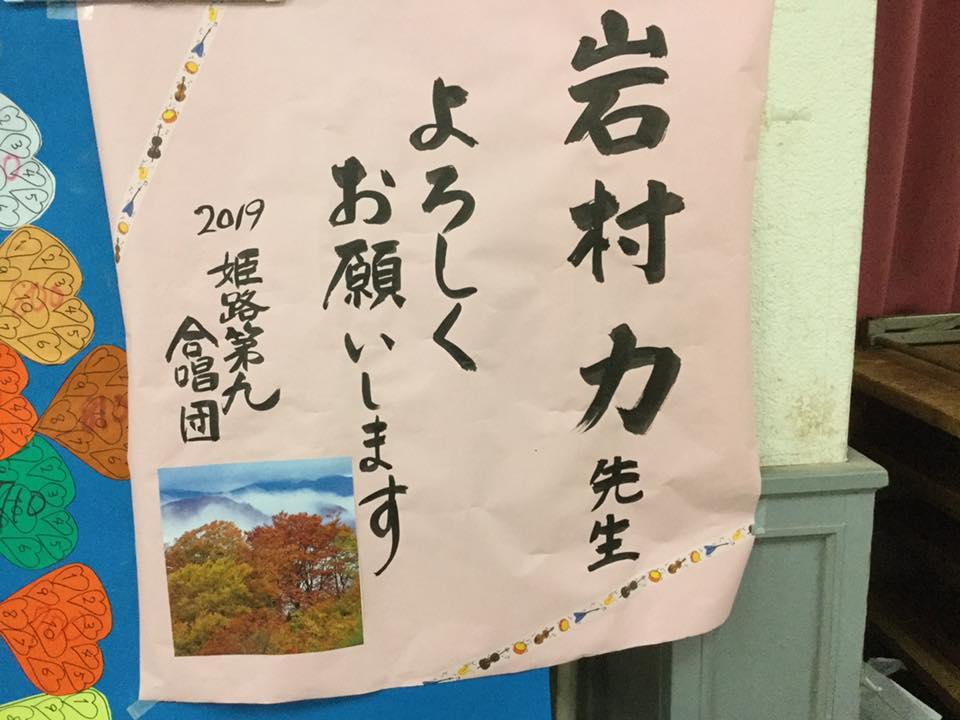 岩村力先生
よろしく
お願いします
2019
姫路第九
合唱団